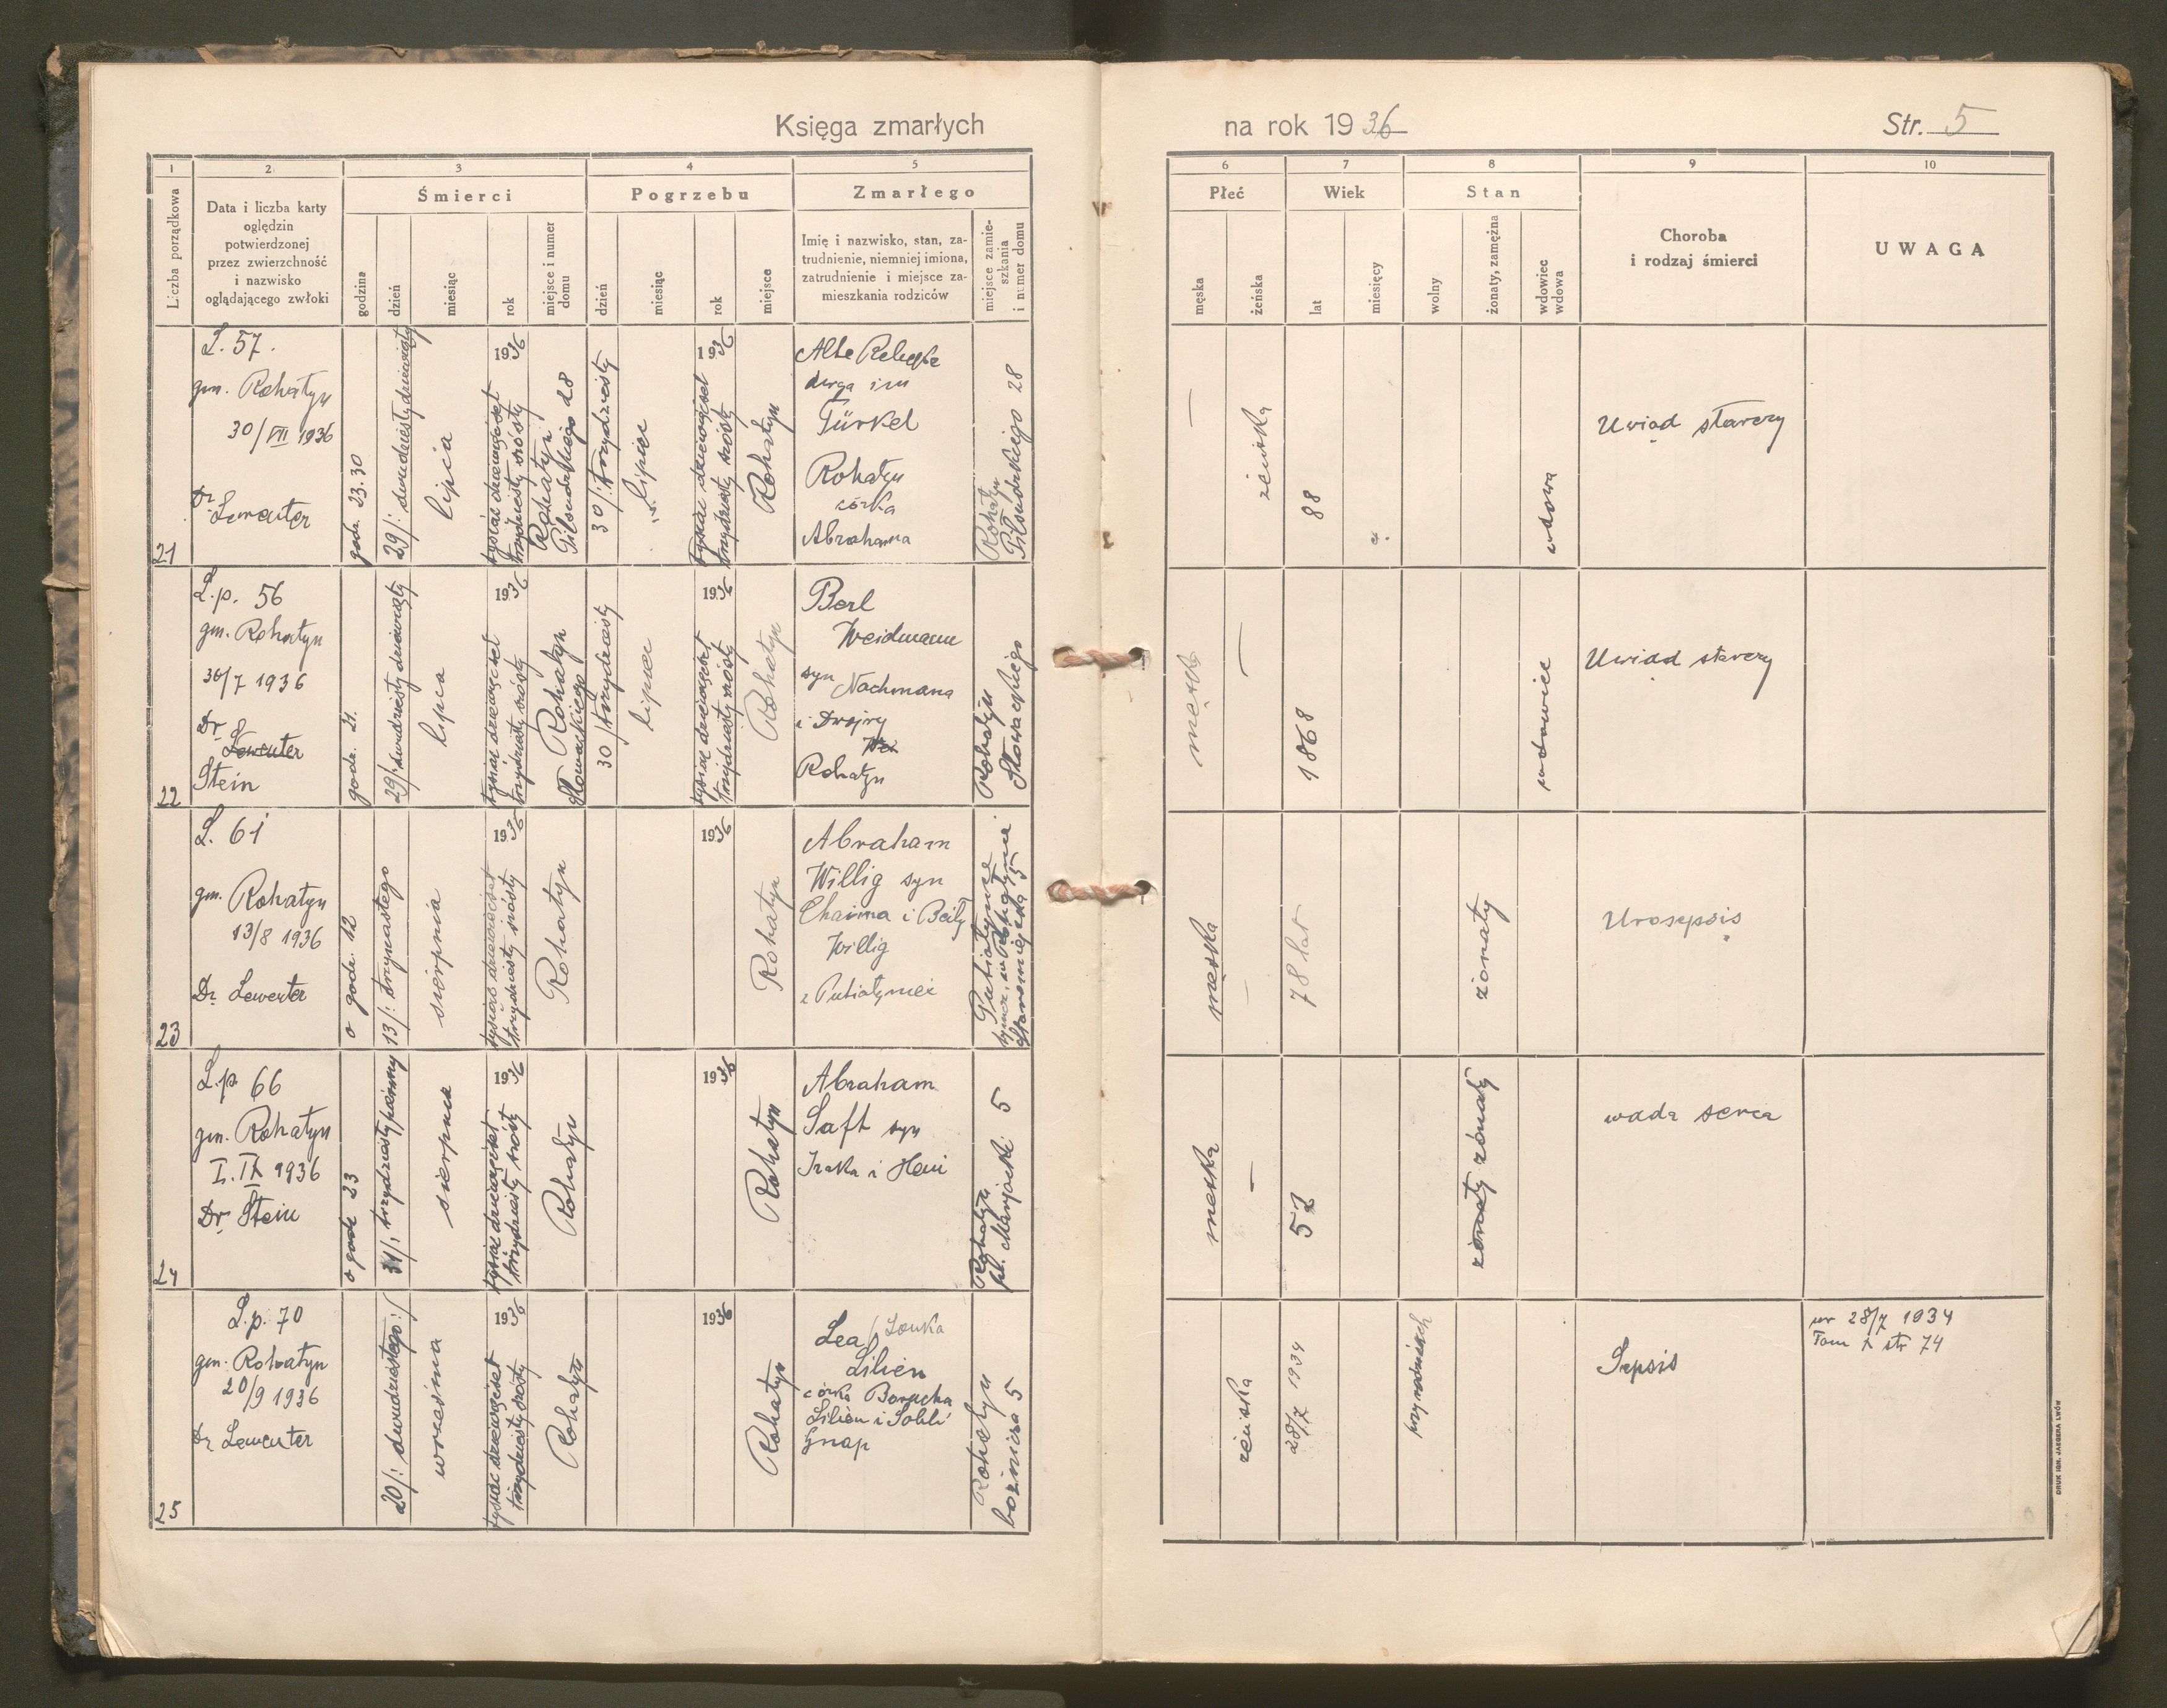 Księga zmarłych
na rok 1936
Str. 5
1
2
3
4
5
6
7
8
9
10
Liczba porządkowa
Data i liczba karty
oględzin
potwierdzonej
przez zwierzchność
i nazwisko
oglądającego zwłoki
Śmierci
godzina
dzień
miesiąc
rok
miejsce i numer
domu
Pogrzebu
dzień
miesiąc
rok
miejsce
Zmarłego
Imię i nazwisko, stan, za-
trudnienie, niemniej imiona,
zatrudnienie i miejsce za-
mieszkania rodziców
miejsce zamie-
szkania
i numer domu
Płeć
męska
żeńska
Wiek
lat
miesięcy
Stan
wolny
żonaty, zamężna
wdowiec
wdowa
Choroba
i rodzaj śmierci
UWAGA
21
L. 57.
gm. Rohatyn
30/VII 1936
Dr Lewenter
godz. 23.30
29/: dwudziesty dziewiąty
lipca
1936
tysiąc dziewięćset
trzydziesty szósty
Rohatyn
Piłsudskiego 28
30/: trzydziesty
lipiec
1936
tysiąc dziewięćset
trzydziesty szósty
Rohatyn
Alte
Türkel
Rohatyn
córka
Abrahama
Rohatyn
Piłsudskiego 28
—
żeńska
88
wdowa
Uwiąd starczy
22
L.p. 56
gm. Rohatyn
30/7 1936
Dr
Lewenter
Stein
godz. 21.
29/: dwudziesty dziewiąty
lipca
1936
tysiąc dziewięćset
trzydziesty szósty
Rohatyn
Słowackiego
30/trzydziesty
lipiec
1936
tysiąc dziewięćset
trzydziesty szósty
Rohatyn
Berl
Weidmann
syn Nachmana
i Dwojry
Wei
Rohatyn
Rohatyn
Słowackiego
męska
—
1868
wdowiec
Uwiąd starczy
23
L. 61
gm. Rohatyn
13/8 1936
Dr Lewenter
o godz. 12
13/: trzynastego
sierpnia
1936
tysiąc dziewięćset
trzydziesty szósty
Rohatyn
1936
Rohatyn
Abraham
Willig syn
Chaima i Beily
Willig
z Putiatyniec
Putiatyńce
męska
—
78 lat
żonaty
Urosepsis
24
L.p. 66
gm. Rohatyn
I. IX 1936
Dr Stein
o godz 23
31/: trzydziesty pierwszy
sierpnia
1936
tysiąc dziewięćset
trzydziesty szósty
Rohatyn
1936
Rohatyn
Abraham
Saft syn
Izaka i Heni
Rohatyn
pl. Maryacki 5
męska
—
52
żonaty żonaty
wada serca
25
L.p. 70
gm. Rohatyn
20/9 1936
Dr Lewenter
20/: dwudziestego :/
września
1936
tysiąc dziewięćset
trzydziesty szósty
Rohatyn
1936
Rohatyn
Lea
Lilien
córka Borucha
Lilien i
Gnap
Rohatyn
bożnicza 5
żeńska
28/7 1934
przy rodzicach
Sepsis
ur 28/7 1934
Tom X str 74
DRUK IGN. JAEGERA LWÓW